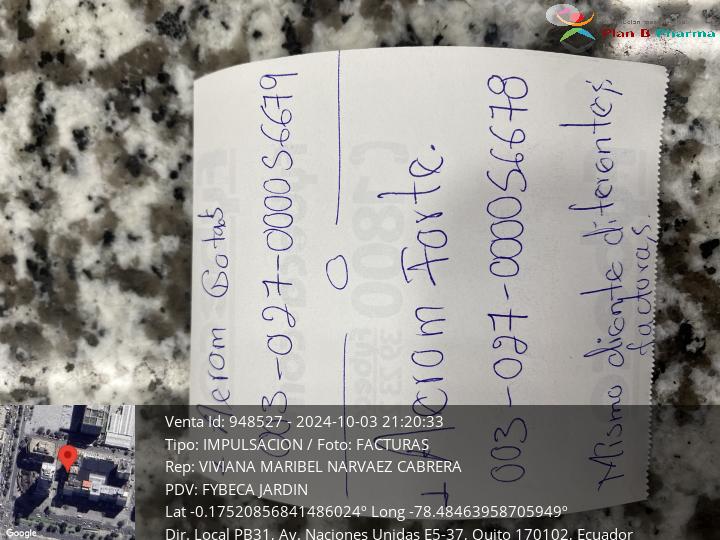 Plan B Pharma
Aerom Gotas
003-027-000056679
0
1 Aerom Forte.
003-027-000056678
Mismo cliente diferentes
facturas.
Venta Id: 948527 - 2024-10-03 21:20:33
Tipo: IMPULSACION / Foto: FACTURAS
Rep: VIVIANA MARIBEL NARVAEZ CABRERA
PDV: FYBECA JARDIN
Lat -0.17520856841486024° Long -78.48463958705949°
Dir. Local PB31, Av. Naciones Unidas E5-37, Quito 170102, Ecuador
Google